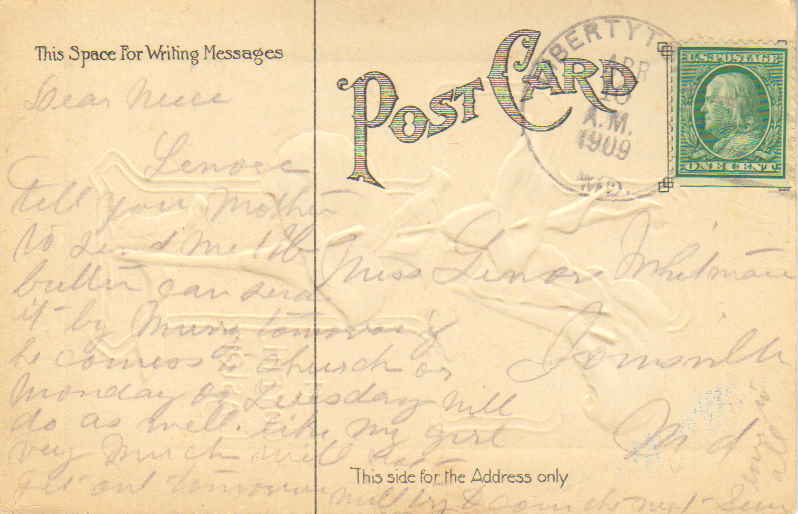 This Space For Writing Messages
POST CARD
LIBERTYT
APR
10
A.M.
1909
MD.
U.S. POSTAGE
ONE CENT
Dear Niece
Lenore
tell your Mother
to send me 1 lb
butter can send
it by Murry tomorrow if
he comes to church or
Monday or Tuesday will
do as well. like my girl
very much will
get out tomorrow will try to come the next
Miss Lenore Whitman
Ionsville
Md
This side for the Address only
love to
all